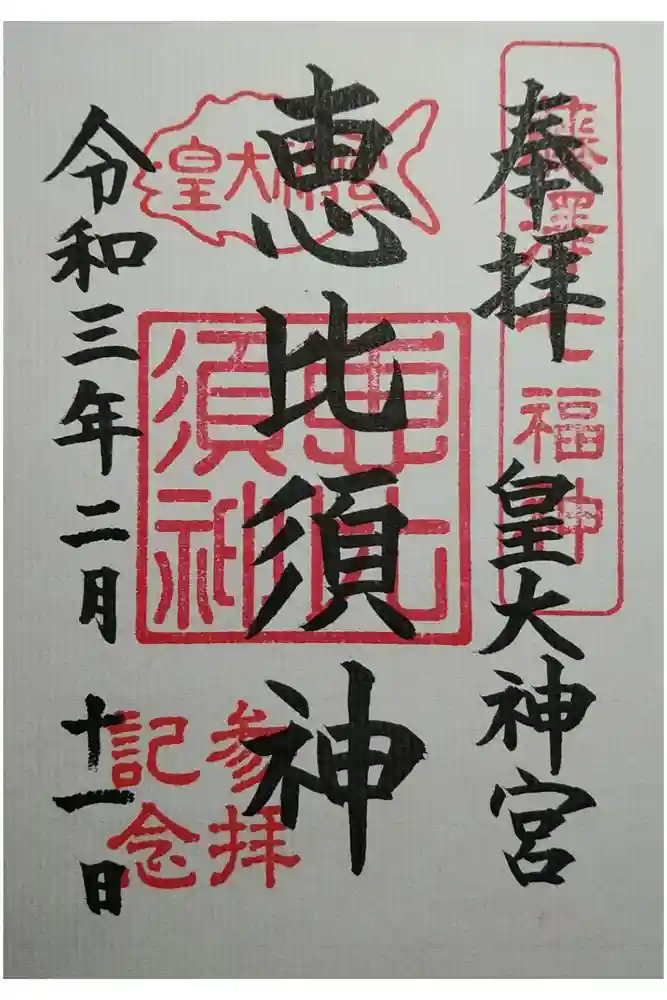 奉拝
皇大神宮
藤澤七福神
恵比須神
皇大神宮
恵比須神
参拝記念
令和三年二月十一日